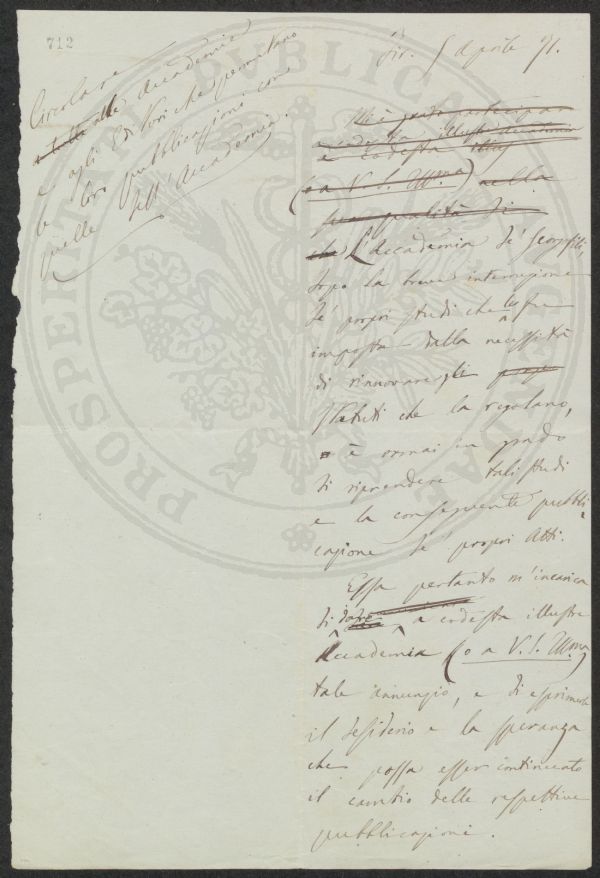 712
Circolare
a tutte alle Accademie
e agli Editori che permutano
le loro pubblicazioni con
quelle dell'Accademia.
Fir. 5 Aprile 71.
Mi è grato partecipar
a codesta illustr Accademia
a codesta illus
(o a V. S. Ill.ma) nella
sua qualità di
che L'Accademia de' Georgofili,
dopo la breve interruzione
de' propri studi che le fu
imposta dalla necessità
di rinnovare gli
Statuti che la regolano,
è ormai in grado
di riprendere tali studi
e la conseguente pubbli
cazione de' propri Atti.
Essa pertanto m'incarica
di dare a codesta illustre
Accademia (o a V. S. Ill.ma)
tale annunzio, e di esprimerle
il desiderio e la speranza
che possa esser continuato
il cambio delle respettive
pubblicazioni.
PROSPERITATI PUBLICAE AUGENDAE